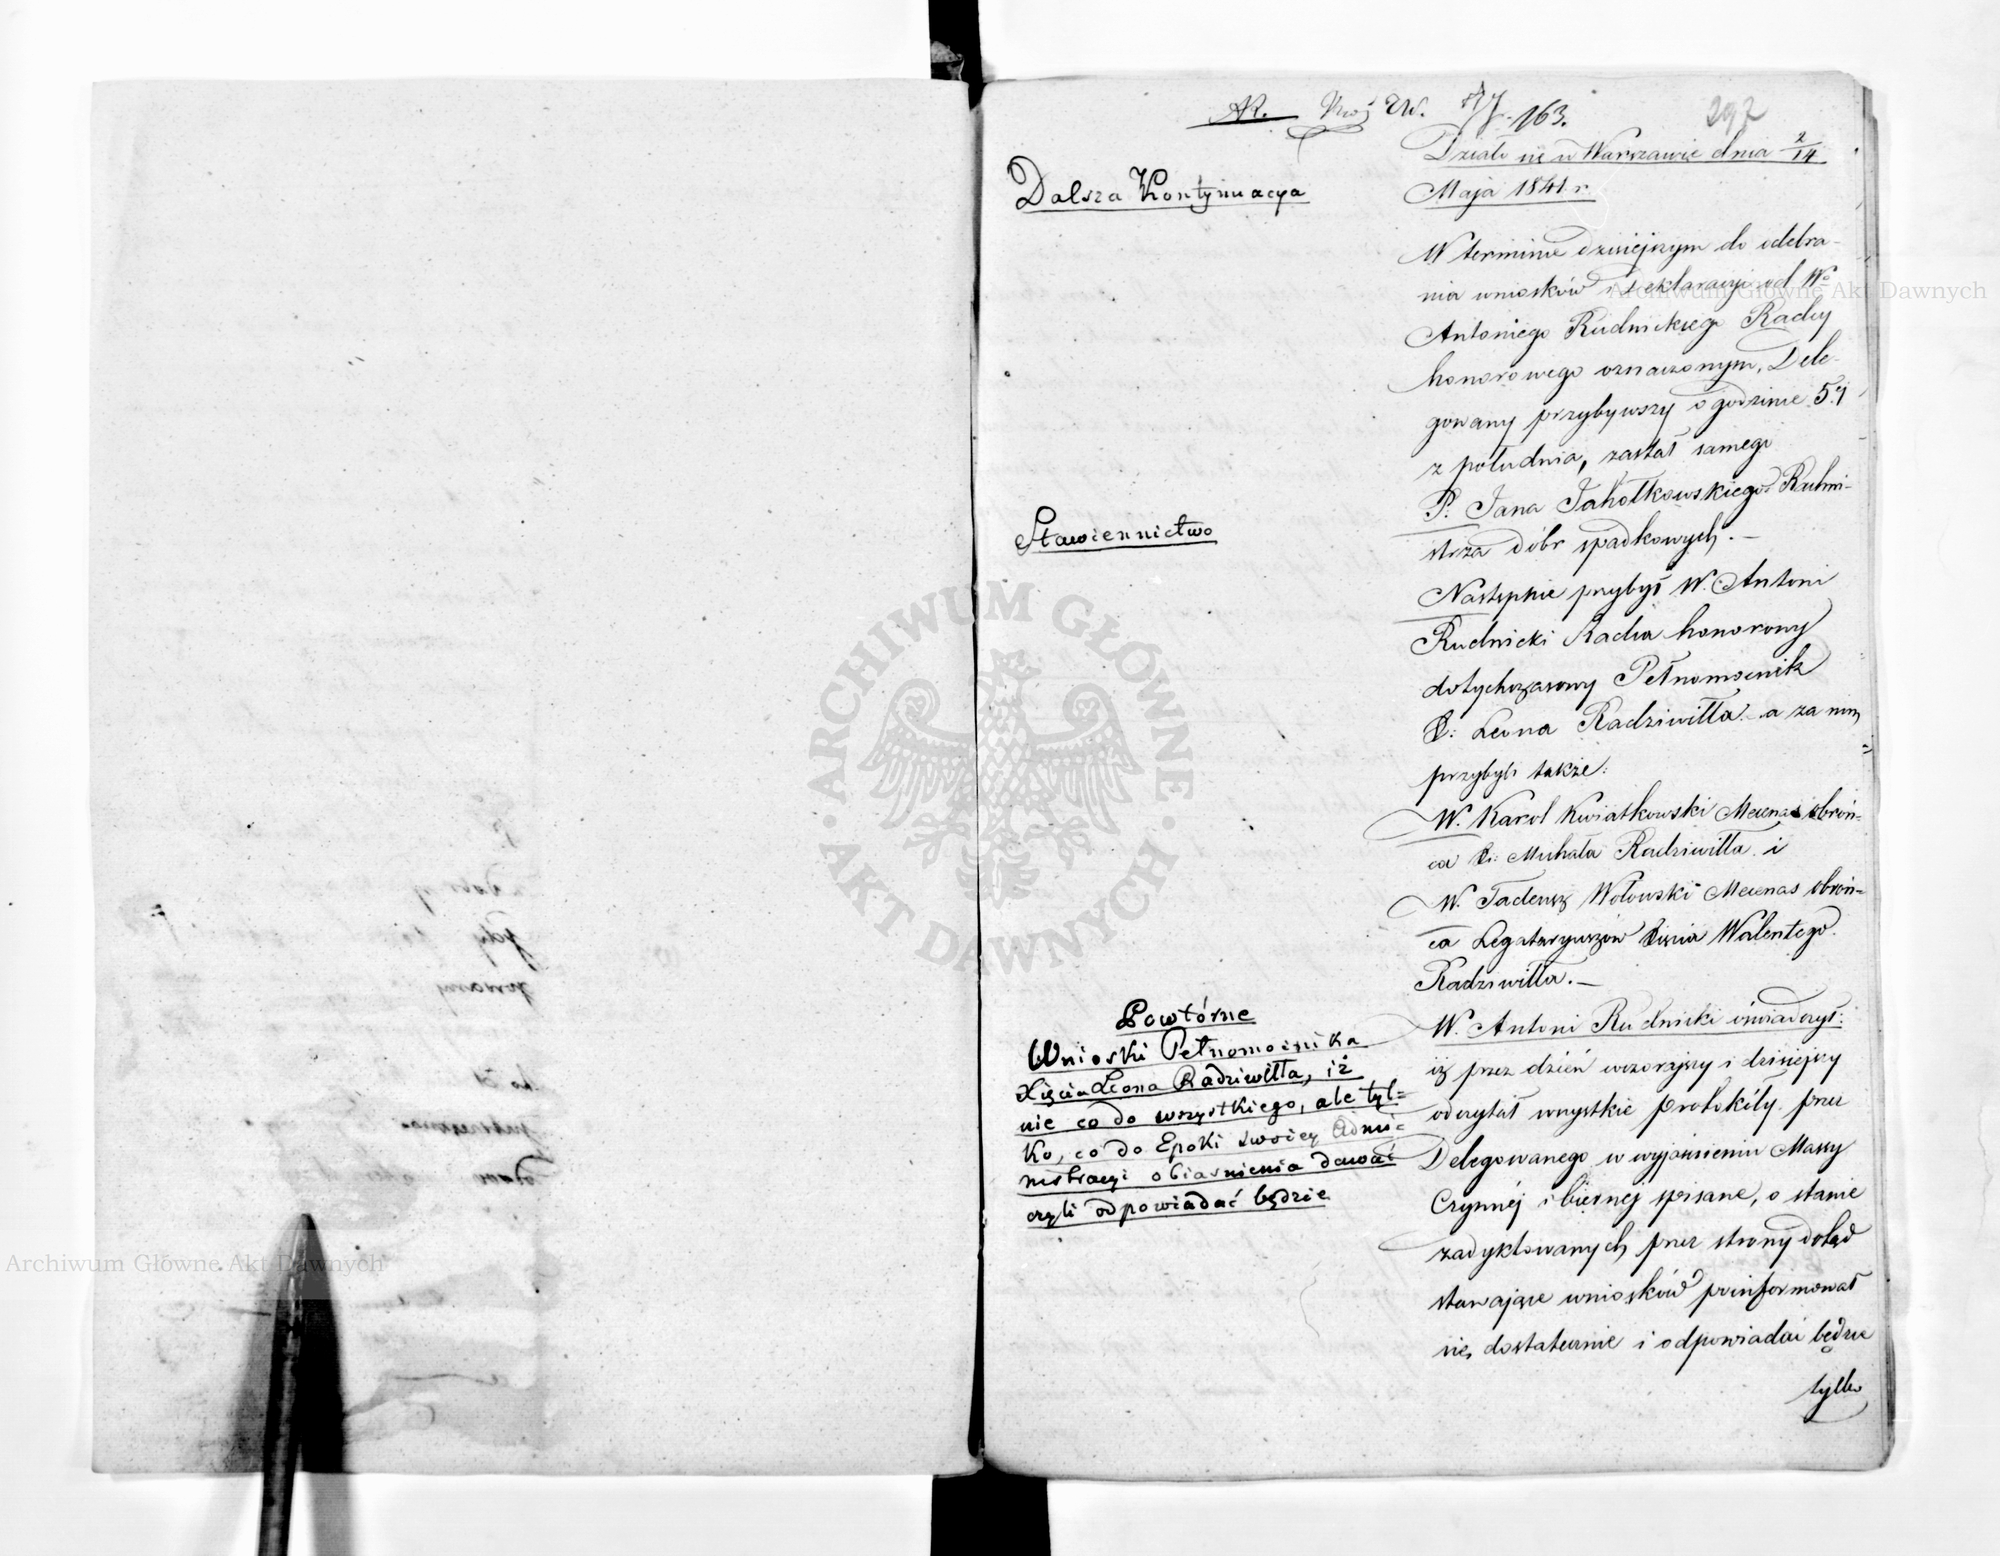 163.
292
Działo się w Warszawie dnia 2/14
Maja 1841 r.
Dalsza Kontynuacya
W terminie dzisiejszym do odebra-
nia wniosków i deklaracyi od Wo
Antoniego Rudnickiego Radcy
honorowego oznaczonym, Dele-
gowany przybywszy o godzinie 5ej
z południa, zastał samego
P. Jana Rachmi-
strza dóbr spadkowych. —
Stawiennictwo
Następnie przybył W. Antoni
Rudnicki Radca honorowy
dotychczasowy Pełnomocnik
X: Leona Radziwiłła a za nim
przybyli także:
W. Karol Kwiatkowski Mecenas obroń-
ca X: Michała Radziwiłła i
W. Tadeusz Wołowski Mecenas obroń=
ca Legataryuszów Xięcia Walentego
Radziwiłła. —
Powtórne
Wnioski Pełnomocnika
Xięcia Leona Radziwiłła, iż
nie co do wszystkiego, ale tyl=
ko, co do Epoki swoiey Admi=
nistracyi obiasnienia dawać
czyli odpowiadać będzie
W. Antoni Rudnicki oświadczył:
iż przez dzień wczorajszy i dzisiejszy
odczytał wszystkie protokóły przez
Delegowanego w wyjaśnieniu Massy
Czynnéj i biernej spisane, o stanie
zadyktowanych przez strony dotąd
stawające wniosków poinformował
się dostatecznie i odpowiadać będzie
tylko
Archiwum Główne Akt Dawnych
Archiwum Główne Akt Dawnych
ARCHIWUM GŁÓWNE
AKT DAWNYCH